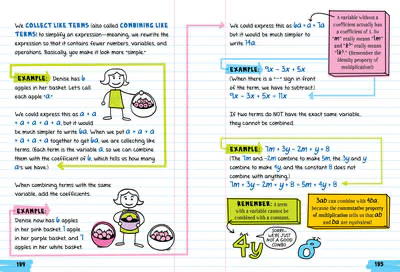 We COLLECT LIKE TERMS (also called COMBINING LIKE
TERMS) to simplify an expression—meaning, we rewrite the
expression so that it contains fewer numbers, variables, and
operations. Basically, you make it look more "simple."
EXAMPLE: Denise has 6
apples in her basket. Let's call
each apple "a."
We could express this as a + a
+ a + a + a + a, but it would
be much simpler to write 6a. When we put a + a + a
+ a + a + a together to get 6a, we are collecting like
terms. (Each term is the variable a, so we can combine
them with the coefficient of 6, which tells us how many
a's we have.)
When combining terms with the same
variable, add the coefficients.
EXAMPLE:
Denise now has 6 apples
in her pink basket, 1 apple
in her purple basket, and 7
apples in her white basket.
194
We could express this as 6a + a + 7a
but it would be much simpler to
write 14a.
A variable without a
coefficient actually has
a coefficient of 1. So
"m" really means "1m"
and "k³" really means
"1k³." (Remember the
identity property of
multiplication!)
EXAMPLE: 9x - 3x + 5x
(When there is a "-" sign in front
of the term, we have to subtract.)
9x - 3x + 5x = 11x
If two terms do NOT have the exact same variable,
they cannot be combined.
EXAMPLE: 7m + 3y - 2m + y + 8
(The 7m and -2m combine to make 5m, the 3y and y
combine to make 4y, and the constant 8 does not
combine with anything.)
7m + 3y - 2m + y + 8 = 5m + 4y + 8
REMEMBER: A term
with a variable cannot be
combined with a constant.
3ab can combine with 4ba,
because the commutative property
of multiplication tells us that ab
and ba are equivalent!
4y
SORRY...
WE'RE JUST
NOT A GOOD
COMBO.
8
195